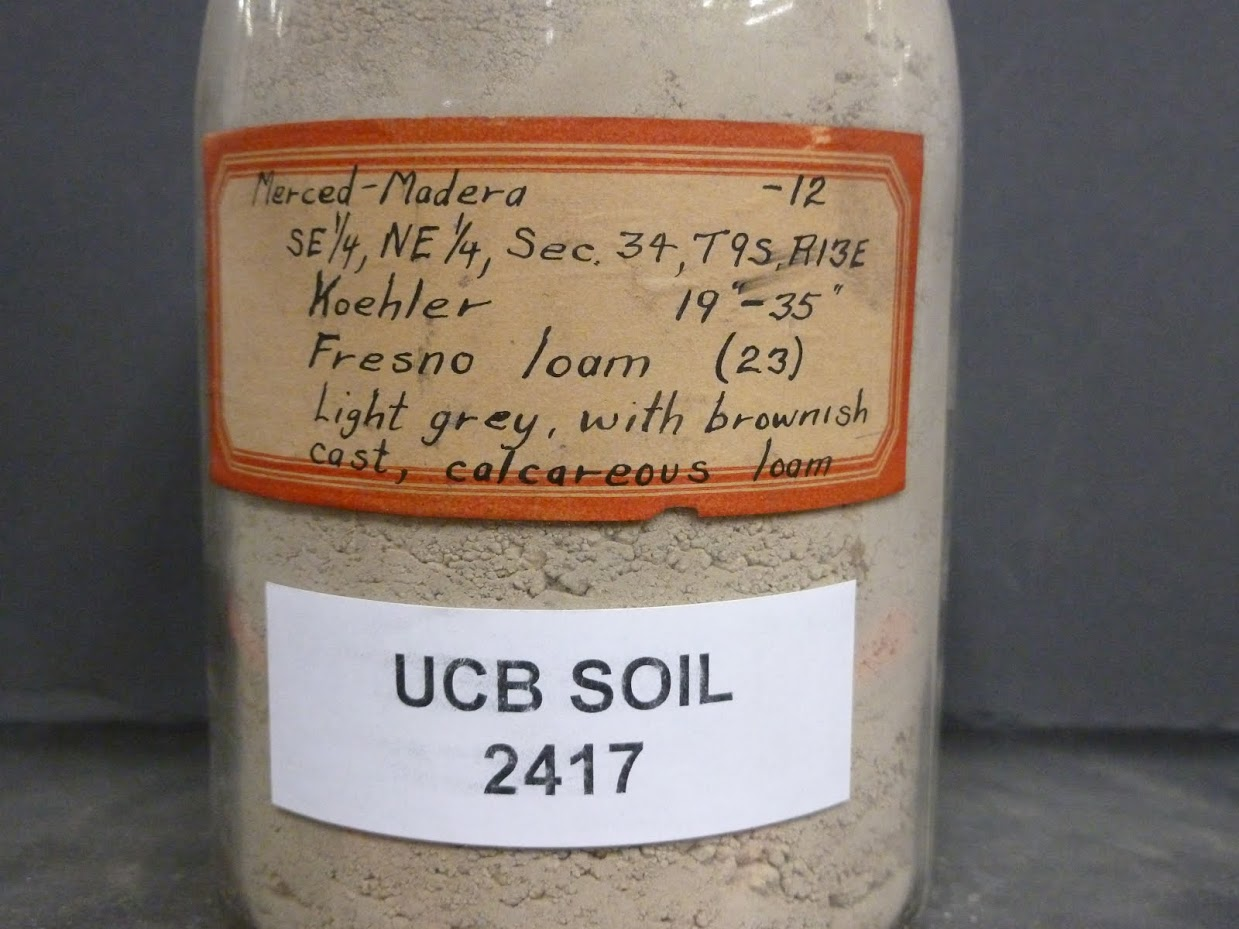 Merced-Madera -12
SE 1/4, NE 1/4, Sec. 34, T9S, R13E
Koehler 19"-35"
Fresno loam (23)
Light grey, with brownish
cast, calcareous loam
UCB SOIL
2417